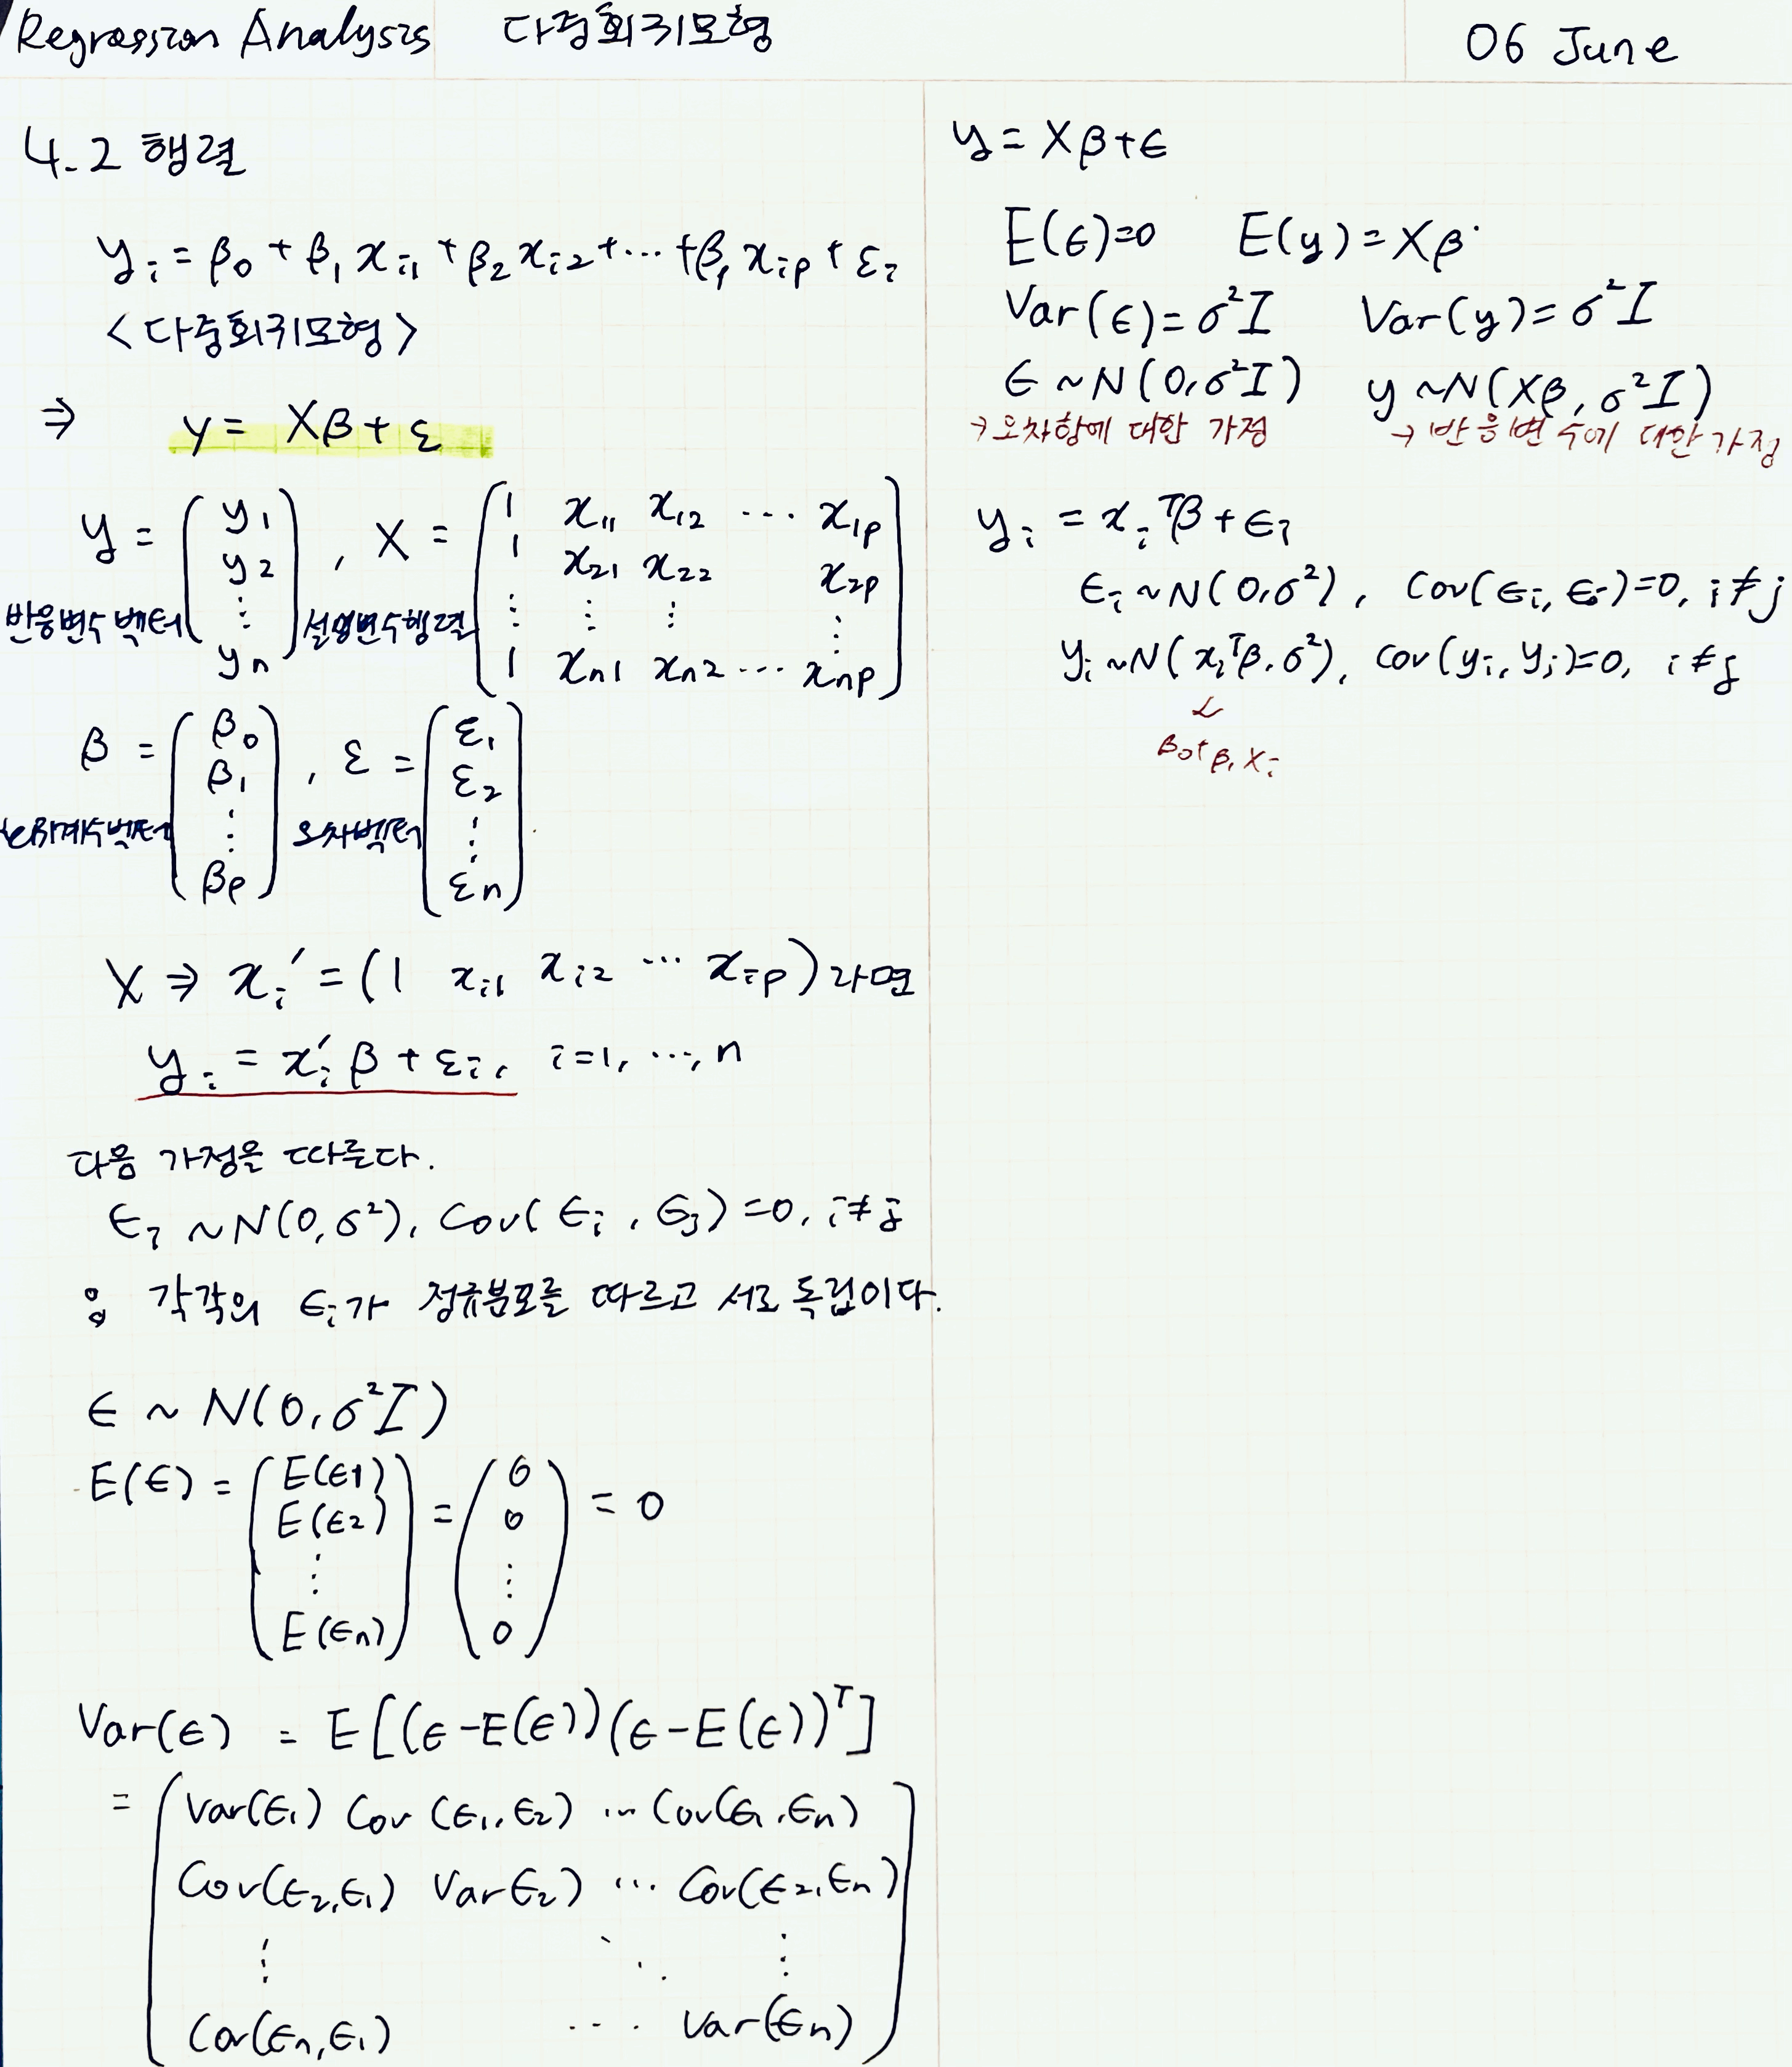 Regression Analysis 다중회귀모형 06 June
4.2 행렬
y_i = β_0 + β_1 x_{i1} + β_2 x_{i2} + ⋯ + β_p x_{ip} + ε_i
<다중회귀모형>
⇒ y = Xβ + ε
y = (y_1 y_2 ⋮ y_n), X = (1 x_{11} x_{12} ⋯ x_{1p}
1 x_{21} x_{22} x_{2p}
⋮ ⋮ ⋮ ⋮
1 x_{n1} x_{n2} ⋯ x_{np})
반응변수 벡터 설명변수행렬
β = (β_0 β_1 ⋮ β_p), ε = (ε_1 ε_2 ⋮ ε_n)
오차벡터
X ⇒ x_i′ = (1 x_{i1} x_{i2} ⋯ x_{ip}) 라면
y_i = x_i′ β + ε_i, i=1, ⋯, n
다음 가정을 따른다.
ϵ_i ~ N(0, σ²), Cov(ϵ_i, ϵ_j) = 0, i≠j
: 각각의 ϵ_i가 정규분포를 따르고 서로 독립이다.
ϵ ~ N(0, σ²I)
E(ϵ) = (E(ϵ1) E(ϵ2) ⋮ E(ϵn)) = (0 0 ⋮ 0) = 0
Var(ϵ) = E[(ϵ-E(ϵ))(ϵ-E(ϵ))^T]
= (Var(ϵ_1) Cov(ϵ_1, ϵ_2) ⋯ Cov(ϵ_1, ϵ_n)
Cov(ϵ_2, ϵ_1) Var ϵ_2) ⋯ Cov(ϵ_2, ϵ_n)
⋮ ⋱ ⋮
Cov(ϵ_n, ϵ_1) ⋯ Var(ϵ_n))
y = Xβ + ϵ
E(ϵ)=0 E(y) = Xβ
Var(ϵ) = σ²I Var(y) = σ²I
ϵ ~ N(0, σ²I) y ~ N(Xβ, σ²I)
→ 오차항에 대한 가정 → 반응변수에 대한 가정
y_i = x_i^T β + ϵ_i
ϵ_i ~ N(0, σ²), Cov(ϵ_i, ϵ_j)=0, i≠j
y_i ~ N(x_i^T β, σ²), Cov(y_i, y_j)=0, i≠j
β_0 + β_1 X_i